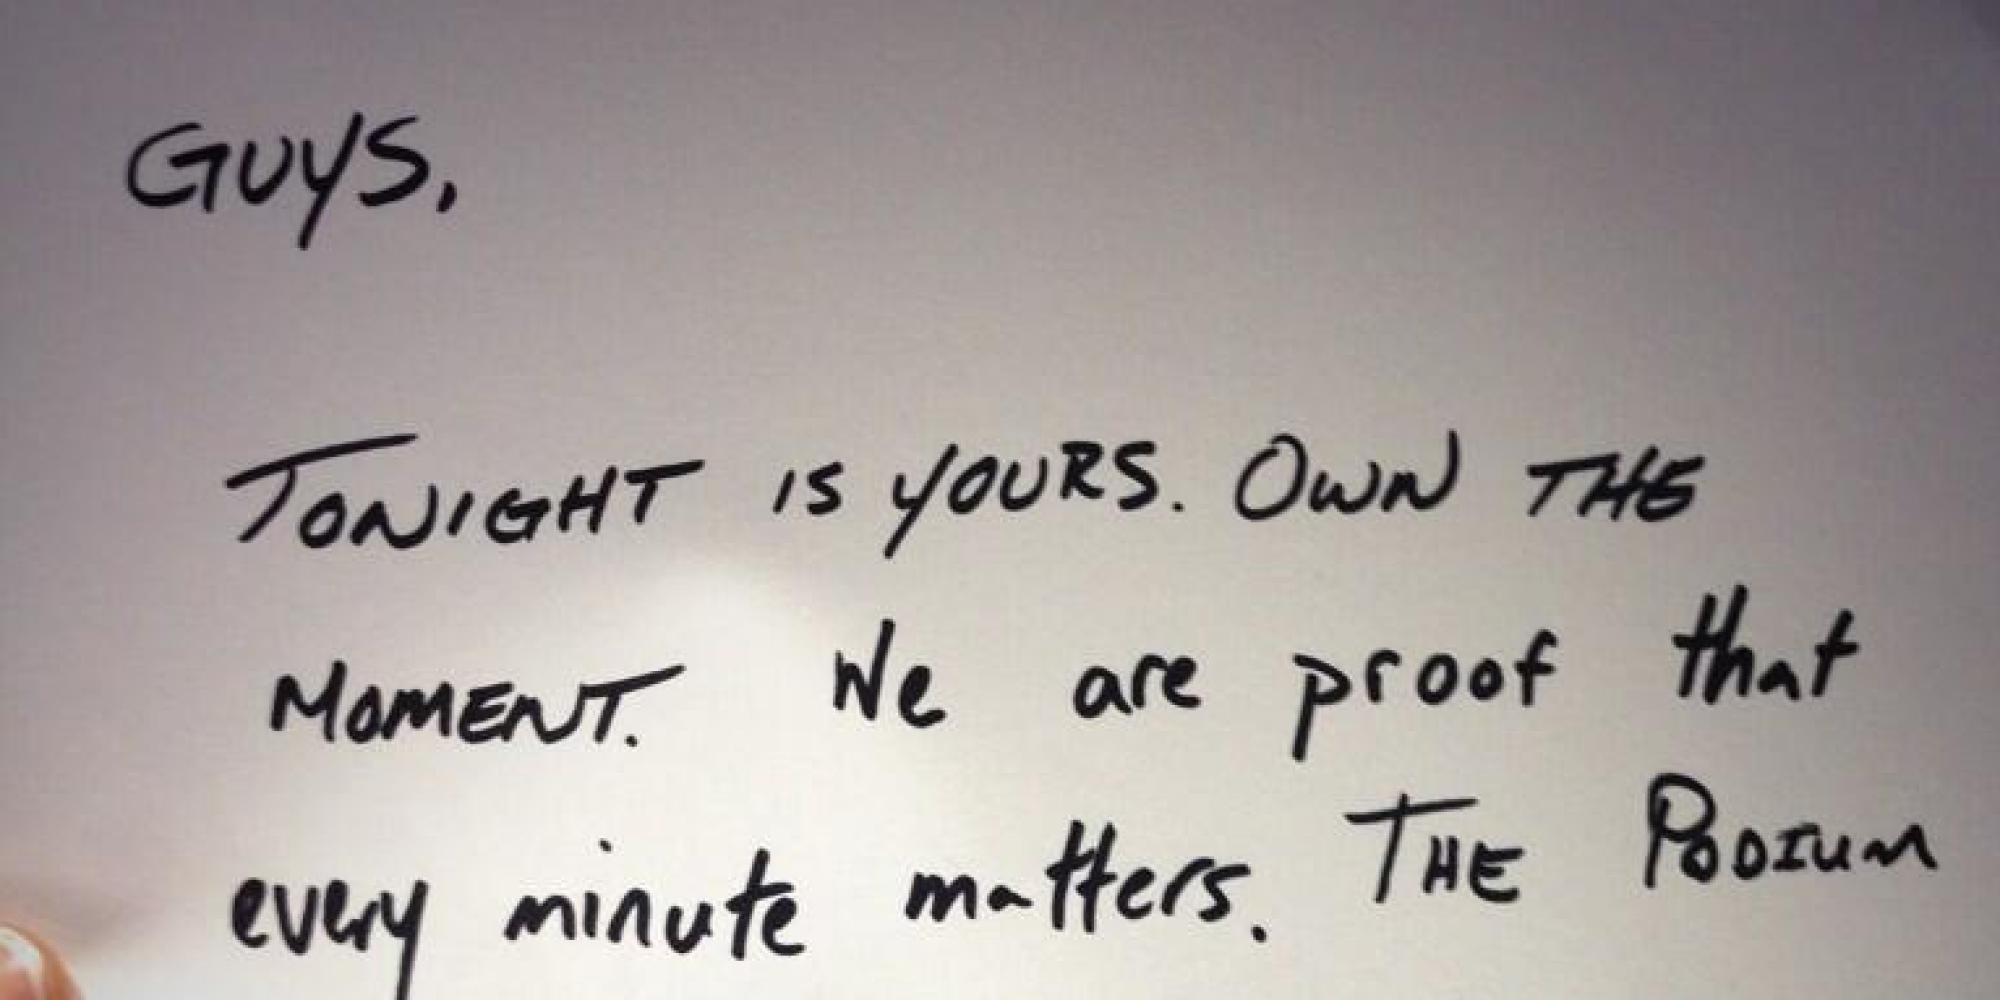 GUYS,
TONIGHT IS YOURS. OWN THE
MOMENT. We are proof that
every minute matters. THE PODIUM